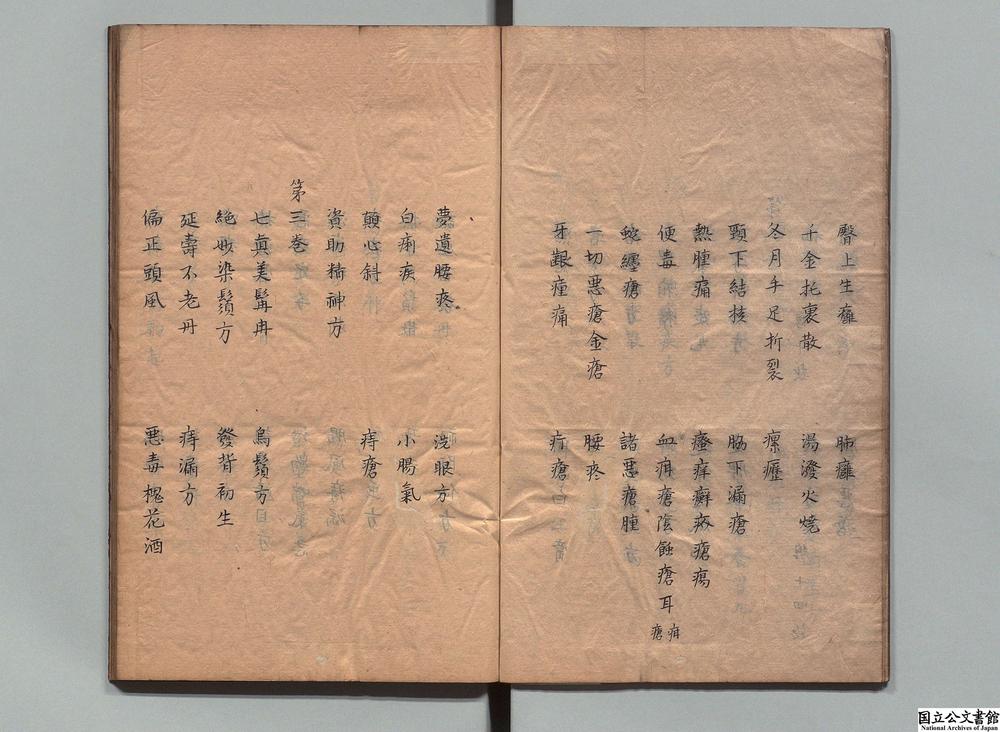 臀上生癰　肺癰
千金托裏散　湯潑火燒
冬月手足折裂　瘰癧
頸下結核　脇下漏瘡
熱腫痛　瘙痒癬疥瘡瘍
便毒　血疳瘡陰蝕瘡耳疳瘡
蛇纏瘡　諸惡瘡腫
一切惡瘡金瘡　腰疼
牙齦痛　疔瘡
夢遺腰疼　洗眼方
白痢疾　小腸氣
顛心斜　痔瘡
資助精神方
第三卷
七真美髯丹　烏鬚方
絕妙染鬚方　發背初生
延壽不老丹　痔漏方
偏正頭風　惡毒槐花酒
国立公文書館
National Archives of Japan